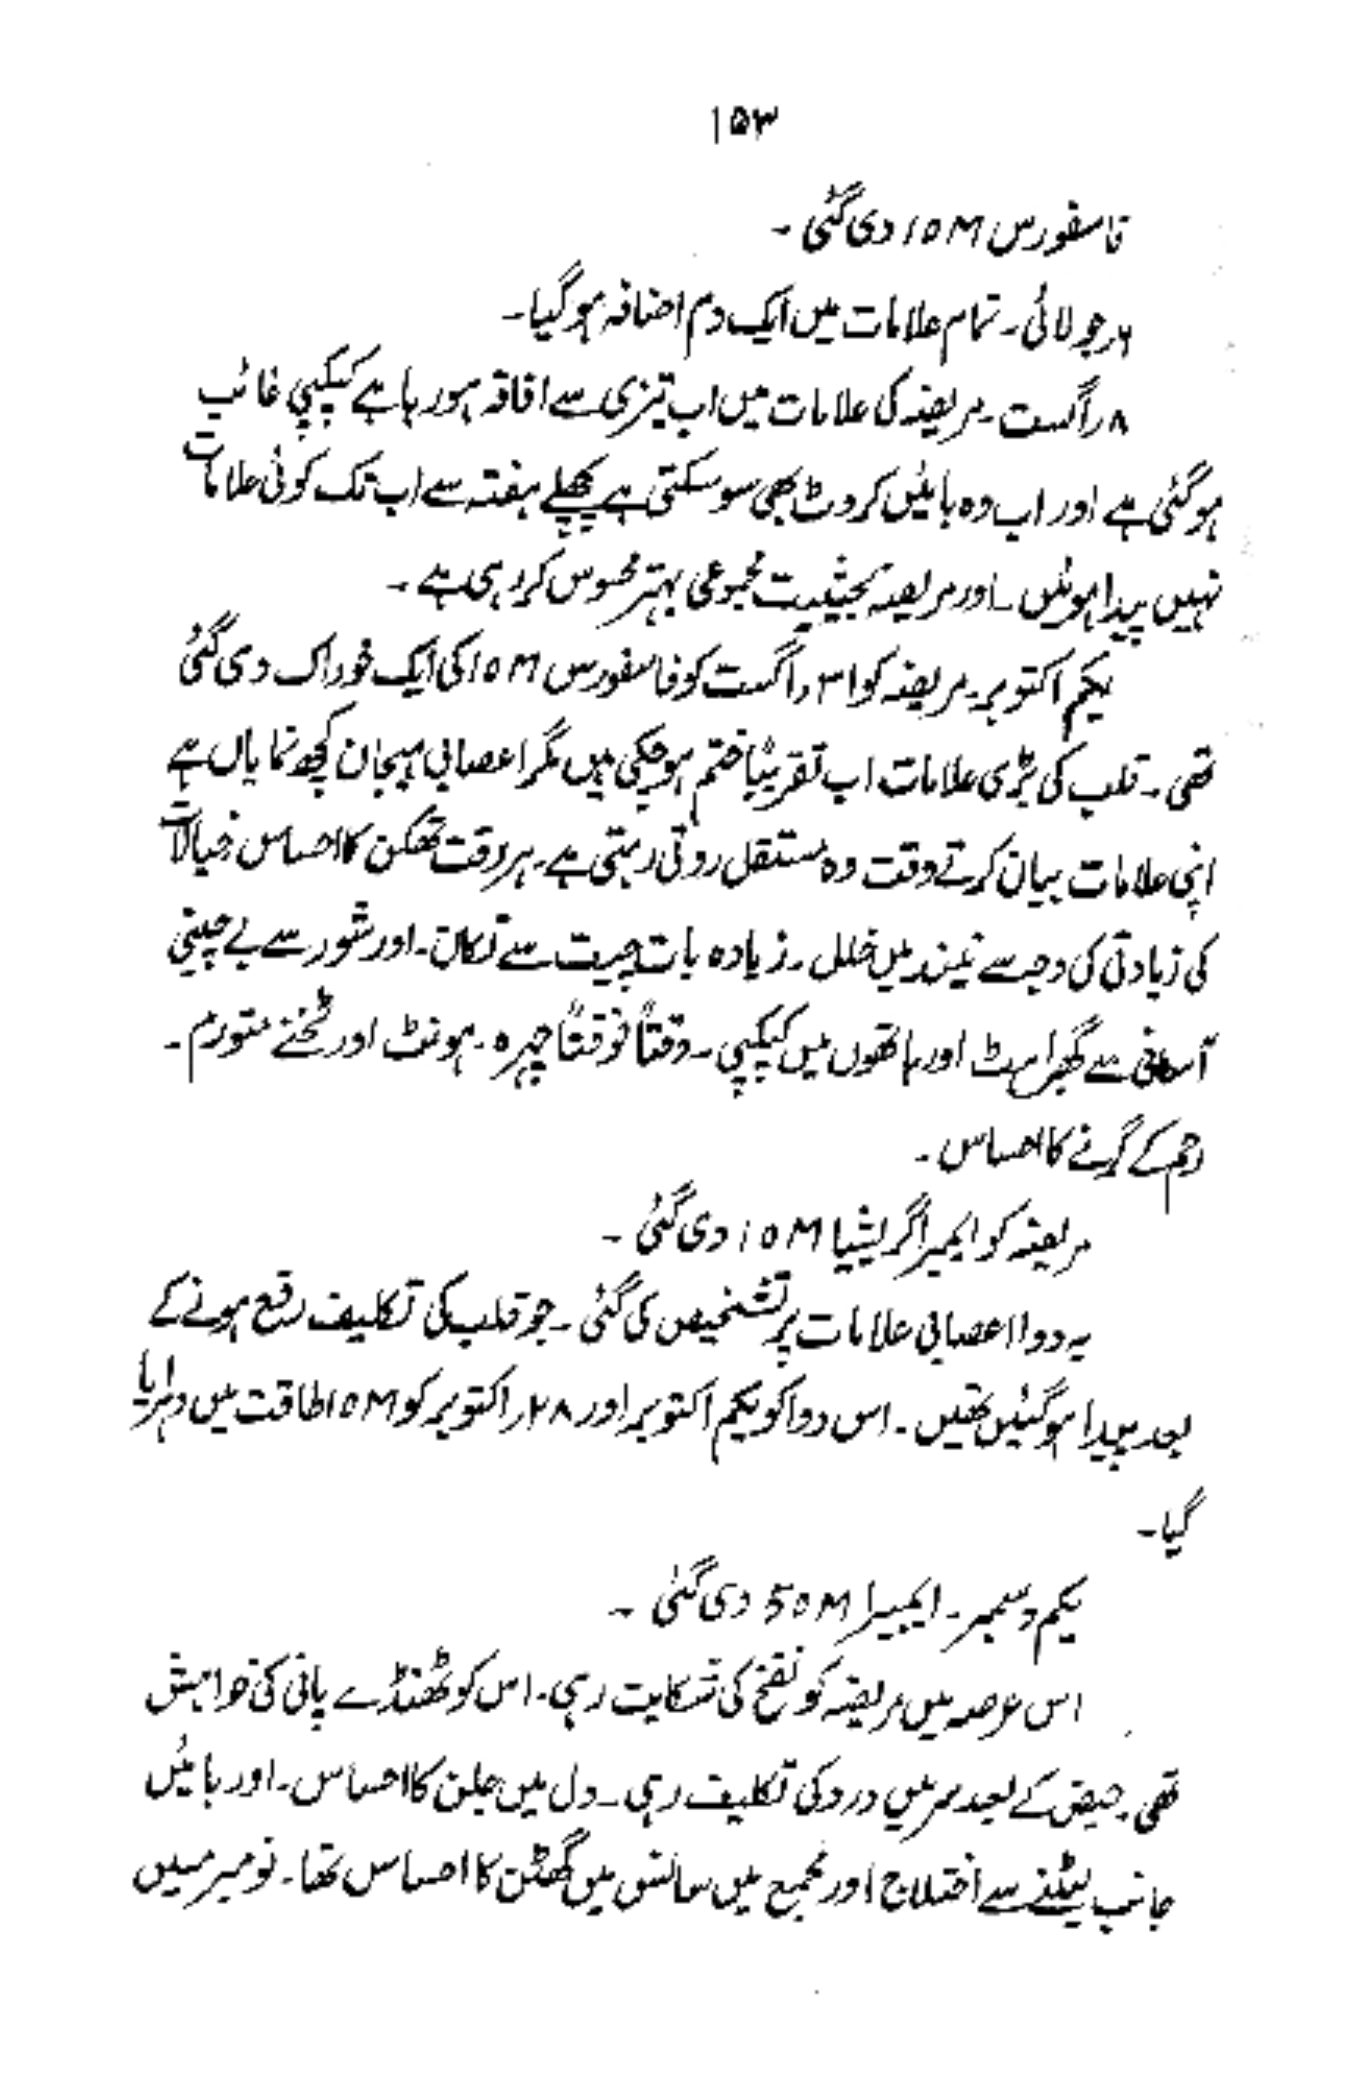 ۱۵۳
فاسفورس 10M دی گئی ۔
۶ر جولائی ۔ تمام علامات میں ایک دم اضافہ ہو گیا ۔
۸ر اگست ۔ مریضہ کی علامات میں اب تیزی سے افاقہ ہو رہا ہے کپکپی غائب
ہو گئی ہے اور اب وہ بائیں کروٹ بھی سو سکتی ہے پچھلے ہفتہ سے اب تک کوئی علامات
نہیں پیدا ہوئیں ۔ اور مریضہ بحیثیت مجموعی بہتر محسوس کر رہی ہے ۔
یکم اکتوبر ۔ مریضہ کو ۳۱ر اگست کو فاسفورس 10M کی ایک خوراک دی گئی
تھی ۔ قلب کی بڑی علامات اب تقریباً ختم ہو چکی ہیں مگر اعصابی ہیجان کچھ نمایاں ہے
اپنی علامات بیان کرتے وقت وہ مستقل روتی رہتی ہے ۔ ہر وقت تھکن کا احساس خیالات
کی زیادتی کی وجہ سے نیند میں خلل ۔ زیادہ بات چیت سے تکان ۔ اور شور سے بے چینی
آسانی سے گھبراہٹ اور ہاتھوں میں کپکپی ۔ وقتاً فوقتاً چہرہ ۔ ہونٹ اور ٹخنے متورم ۔
رحم کے گرنے کا احساس ۔
مریضہ کو ایمبرا گریشیا 10M دی گئی ۔
یہ دوا اعصابی علامات پر تشخیص کی گئی ۔ جو قلب کی تکلیف رفع ہونے کے
بعد پیدا ہو گئیں تھیں ۔ اس دوا کو یکم اکتوبر اور ۲۸ر اکتوبر کو 10M طاقت میں دہرایا
گیا ۔
یکم دسمبر ۔ ایمبرا 50M دی گئی ۔
اس عرصہ میں مریضہ کو نفخ کی شکایت رہی ۔ اس کو ٹھنڈے پانی کی خواہش
تھی ۔ حیض کے بعد سر میں درد کی تکلیف رہی ۔ دل میں جلن کا احساس ۔ اور بائیں
جانب لیٹنے سے اختلاج اور مجمع میں سانس میں گھٹن کا احساس تھا ۔ نومبر میں